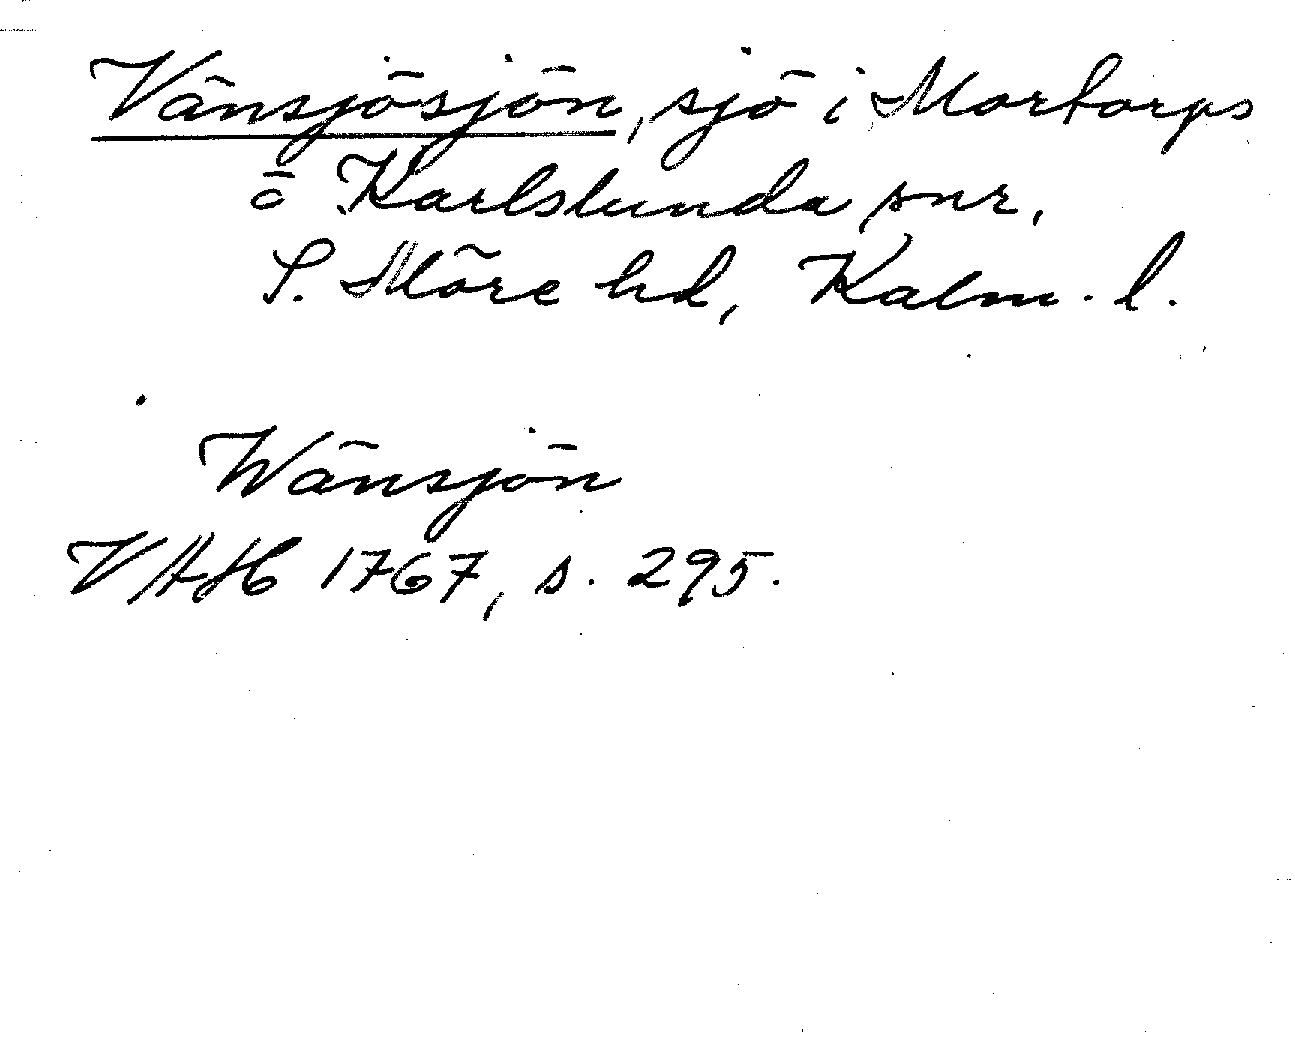 Vänsjösjön, sjö i Mortorps
o Karlslunda snr,
S. Möre hd, Kalm. l.
Wänsjön
VAH 1767, s. 295.